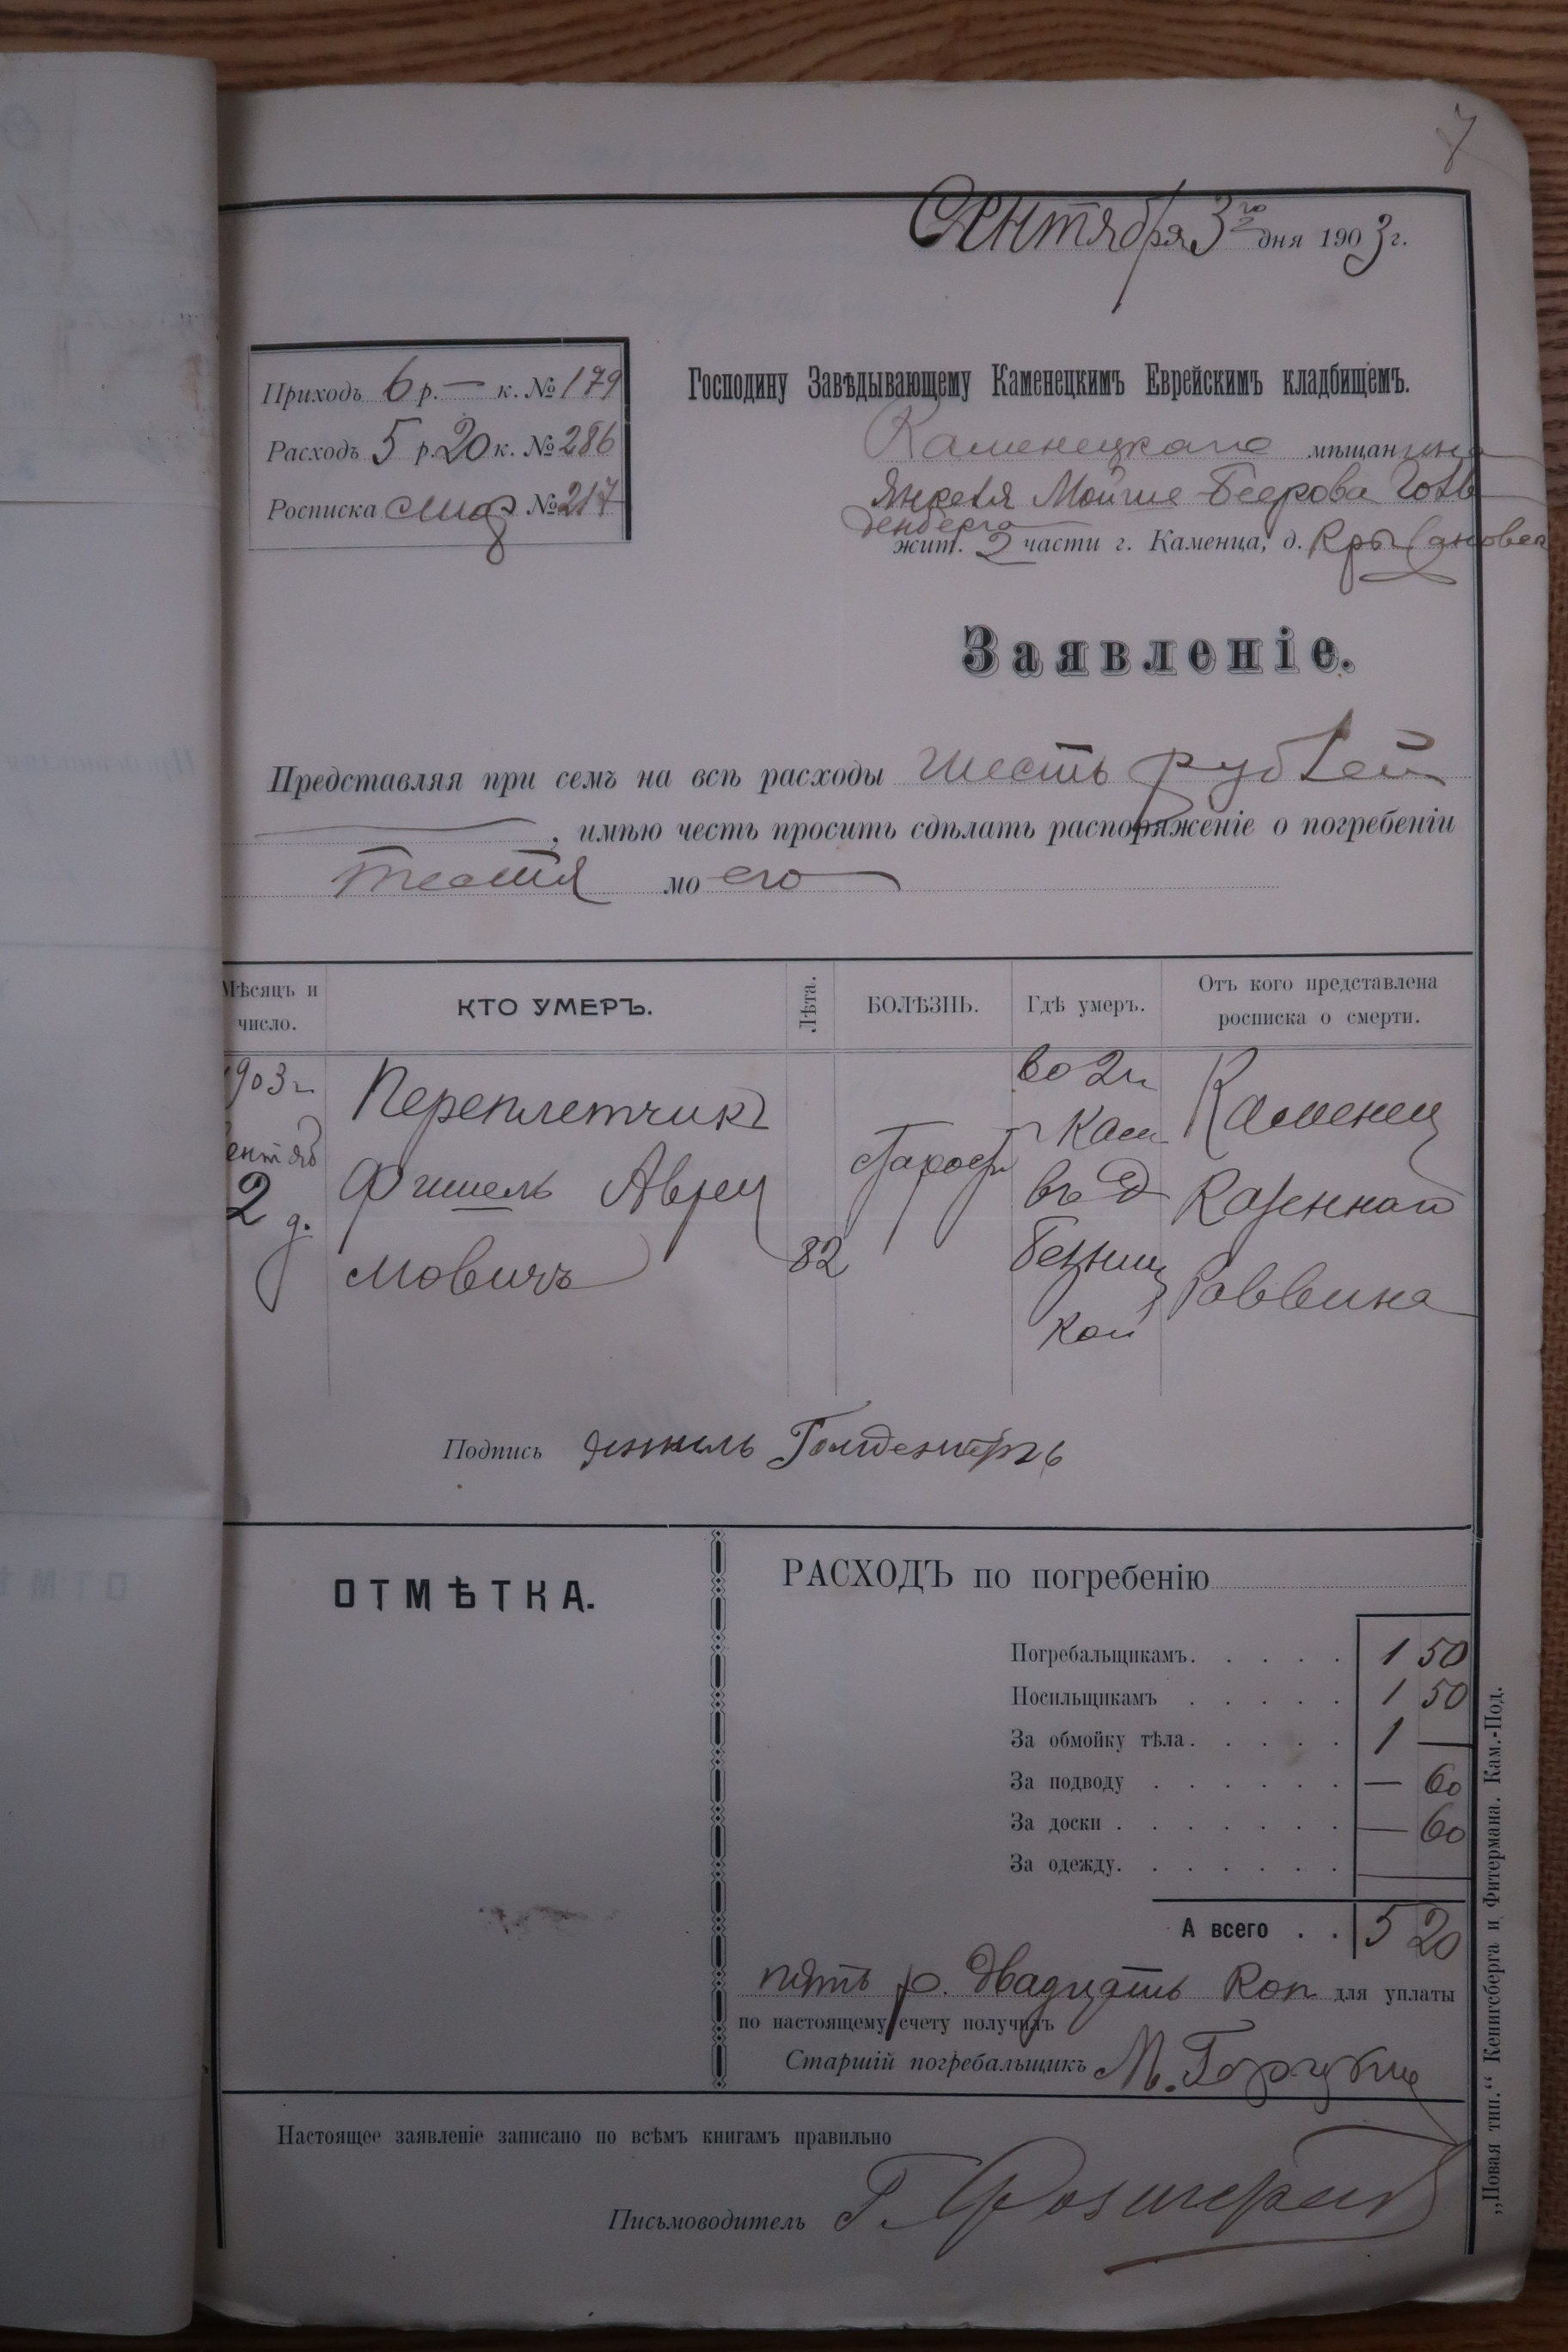 7
Сентября 3го дня 1903 г.
Приходъ 6 р. — к. № 179
Расходъ 5 р. 20 к. № 286
Росписка № 217
Господину Завѣдывающему Каменецкимъ Еврейскимъ кладбищемъ.
Каменецкаго мѣщанина
Янкеля Мойше-Беерова Голь
денберга
жит. 2 части г. Каменца, д.
Заявленіе.
Представляя при семъ на всѣ расходы шесть рублей
, имѣю честь просить сдѣлать распоряженіе о погребеніи
тестя моего
Мѣсяцъ и число.
КТО УМЕРЪ.
Лѣта.
БОЛѢЗНЬ.
Гдѣ умеръ.
Отъ кого представлена росписка о смерти.
903 г
ентяб
2 д.
Переплетчикъ
Фишель Аврец
мовичъ
82
старост
во 2 ч
г Кам
въ Ев
Каменец
Казеннаго
Раввина
Подпись Янкель Гольденбергъ
ОТМѢТКА.
РАСХОДЪ по погребенію
Погребальщикамъ. 1 50
Носильщикамъ 1 50
За обмойку тѣла. 1 —
За подводу — 60
За доски — 60
За одежду. —
А всего 5 20
пять р. двадцать коп для уплаты
по настоящему счету получилъ
Старшій погребальщикъ М.
Настоящее заявленіе записано по всѣмъ книгамъ правильно
Письмоводитель Г.
„Новая тип.“ Кенигсберга и Фитермана. Кам.-Под.